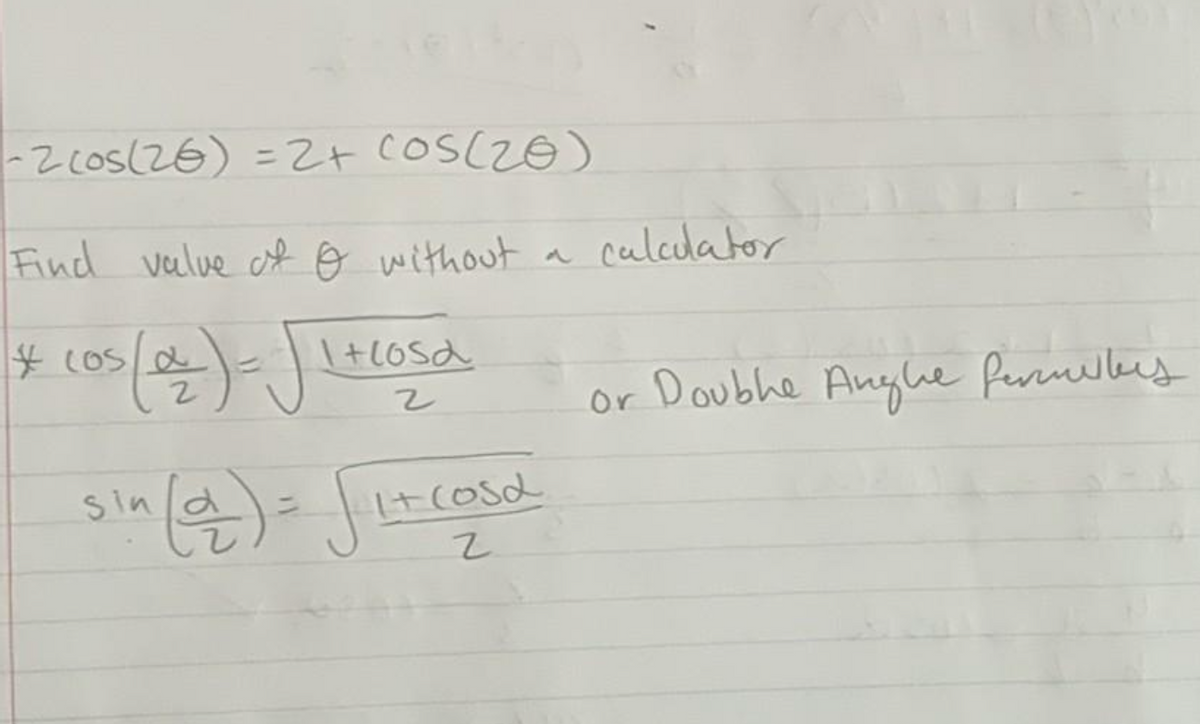 -2cos(2θ) = 2+ cos(2θ)
Find value of θ without a calculator
* cos(α/2) = √((1+cosα)/2)
or Doubhe Anghe formulas
sin(α/2) = √((1+cosα)/2)